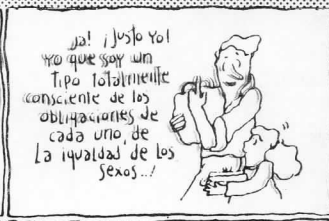 ja! ¡Justo yo!
yo que soy un
tipo totalmente
consciente de las
obligaciones de
cada uno, de
la igualdad de los
sexos..!